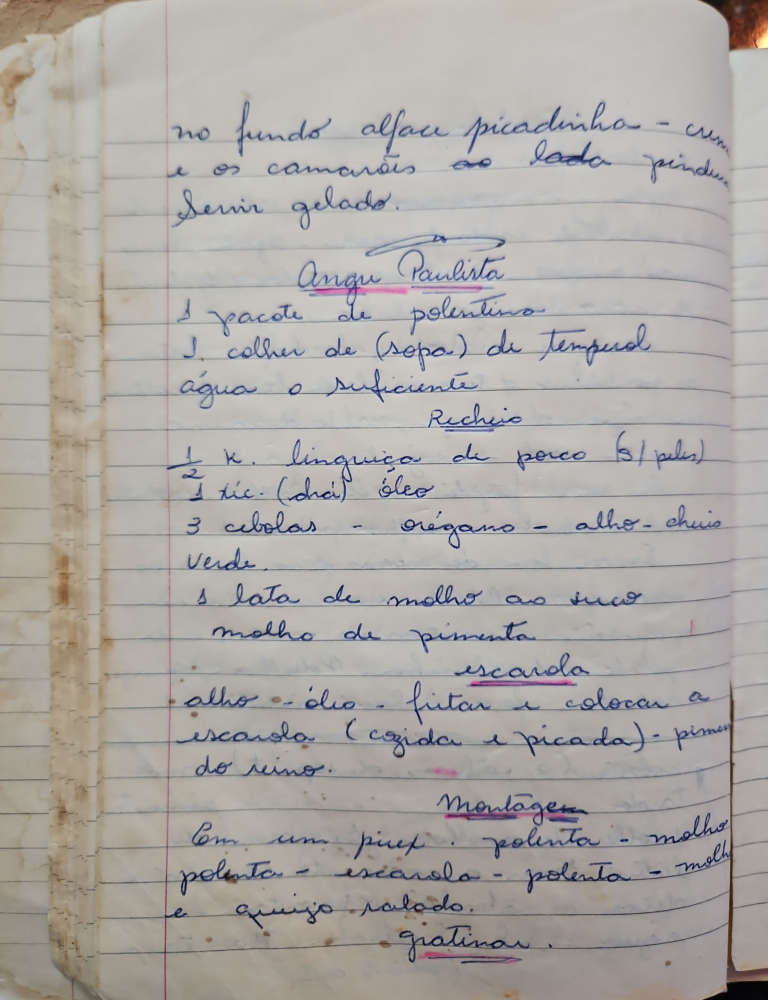 no fundo alface picadinha - crem
e os camarões ao lada pindu
Servir gelado.
Angu Paulista
1 pacote de polentina
1. colher de (sopa) de temperol
água o suficiente
Recheio
1/2 K. linguiça de porco (s/ peles)
1 xic. (chá) óleo
3 cebolas - orégano - alho - cheio
verde.
1 lata de molho ao suco
molho de pimenta
escarola
alho - óleo - fritar e colocar a
escarola (cozida e picada) - pimen
do reino.
Montagem
Em um pirex . polenta - molho
polenta - escarola - polenta - molh
e queijo ralado.
gratinar.